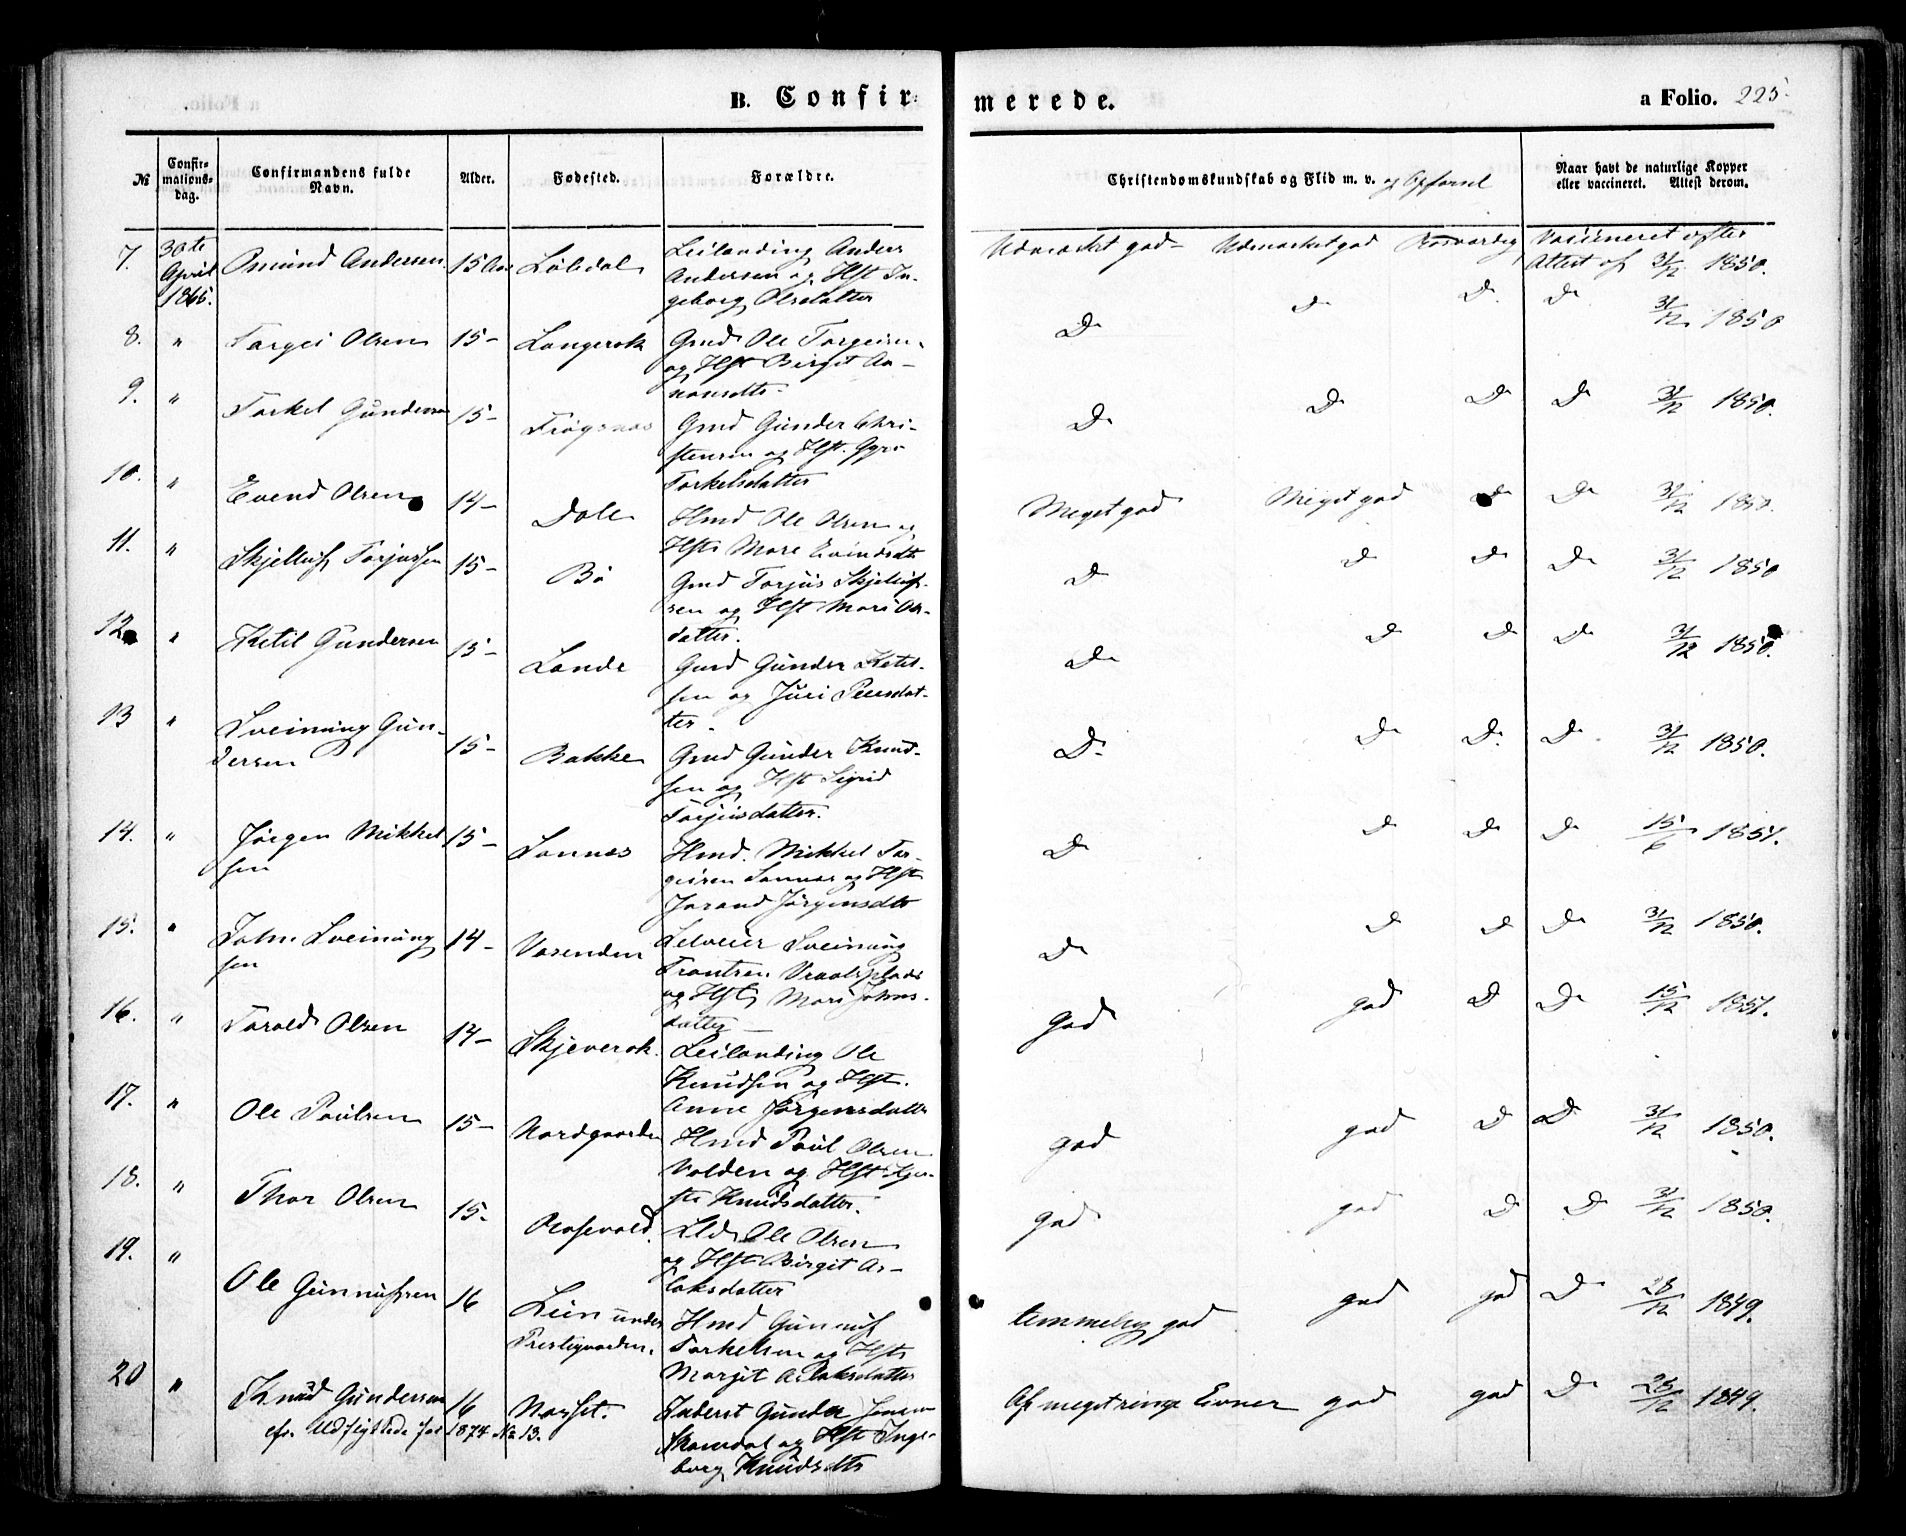 B. Confir-
merede.
a Folio. 225.
№
Confir-
mations-
dag.
Confirmandens fulde
Navn.
Alder.
Fødested.
Forældre.
Christendomskundskab og Flid m. v. og Opførsel
Naar havt de naturlige Kopper
eller vaccineret. Attest derom.
7. 30te April 1865. Asmund Andersen 15 Aar
Leilænding Anders
Andersen og Hst In-
geborg Olsdatter
Udmærket god Udmærket god Vaccineret efter
Attest af 31/12 1850.
8. " Targei Olsen 15- Langerak
Gmd Ole Targeisen
og Hst Birgit Aa-
nonsdtr
D D D D 31/12 1850
9. " Torkel Gundersen 15-
Gmd Gunder Chri-
stensen og Hst. Gyro
Torkelsdatter
D D D D 31/12 1850.
10. " Evend Olsen 14- Dale
Hmd Ole Olsen og
Hst Mare Evindsdtr
Meget god Meget god D D 31/12 1850.
11. " Skjelluf Torjussen 15- Bø
Gmd Torjus Skjelluf-
sen og Hst Mari Ols-
datter.
D D D D 31/12 1850
12. " Ketil Gundersen 15- Lande
Gmd Gunder Ketil-
sen og Juri Peersdat-
ter.
D D D D 31/12 1850.
13 " Sveinung Gun-
dersen 15- Bakke
Gmd Gunder Knud-
sen og Hst Sigrid
Torjusdatter.
D D D D 31/12 1850.
14. " Jørgen Mikkel
sen 15- Sannes
Hmd. Mikkel Tar-
geisen Sannes og Hst
Jorand Jørgensdtr
D D D D 15/6 1851.
15. " John Sveinung
sen 14- Vasenden
Selveier Sveinung
og Hst Mari Johns-
datter
D D D D 31/12 1850.
16. " Torald Olsen 14- Skjeverak.
Leilænding Ole
Knudsen og Hst.
Anne Jørgensdatter
god god D D 15/12 1851.
17. " Ole Paulsen 15- Nordgaarden
Hmd Paul Olsen
Valden og Hst Kjer-
sti Knudsdatter.
god god D D 31/12 1850.
18. " Thor Olsen 15. Rosevald.
Ole Olsen
og Hst Birgit As-
laksdatter
god god D D 31/12 1850.
19. " Ole Gunnufsen 16 Lien under
Prestegaarden.
Hmd Gunnuf
Torkelsen og Hst
Margit Aslaksdatter
temmelig god god god D 28/12 1849.
20 " Knud Gundersen 16
Inderst Gunder Jensen
og Hst Inge-
borg Knudsdtr
Af meget ringe Evner god god D 28/12 1849.
cfr. Udflyttede for 1874 No 13.